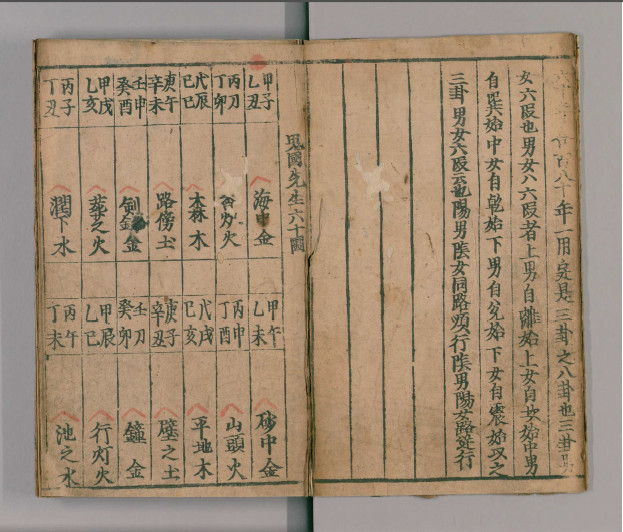 百八十年一用定是三卦之八卦也三卦男
女六段也男女八六段者上男自離始上女自坎始中男
自巽始中女自乾始下男自兌始下女自震始以之
三卦男女六段云也陽男陰女同路順行陰男陽女路逆行
鬼國先生六十圖
甲子乙丑 海中金
丙刀丁卯 灯火
戊辰己巳 森木
庚午辛未 路傍土
壬申癸酉 劍金
甲戌乙亥 火
丙子丁丑 澗下水
甲午乙未 砂中金
丙申丁酉 山頭火
戊戌己亥 平地木
庚子辛丑 壁之土
壬刀癸卯 鐘金
甲辰乙巳 行灯火
丙午丁未 池之水